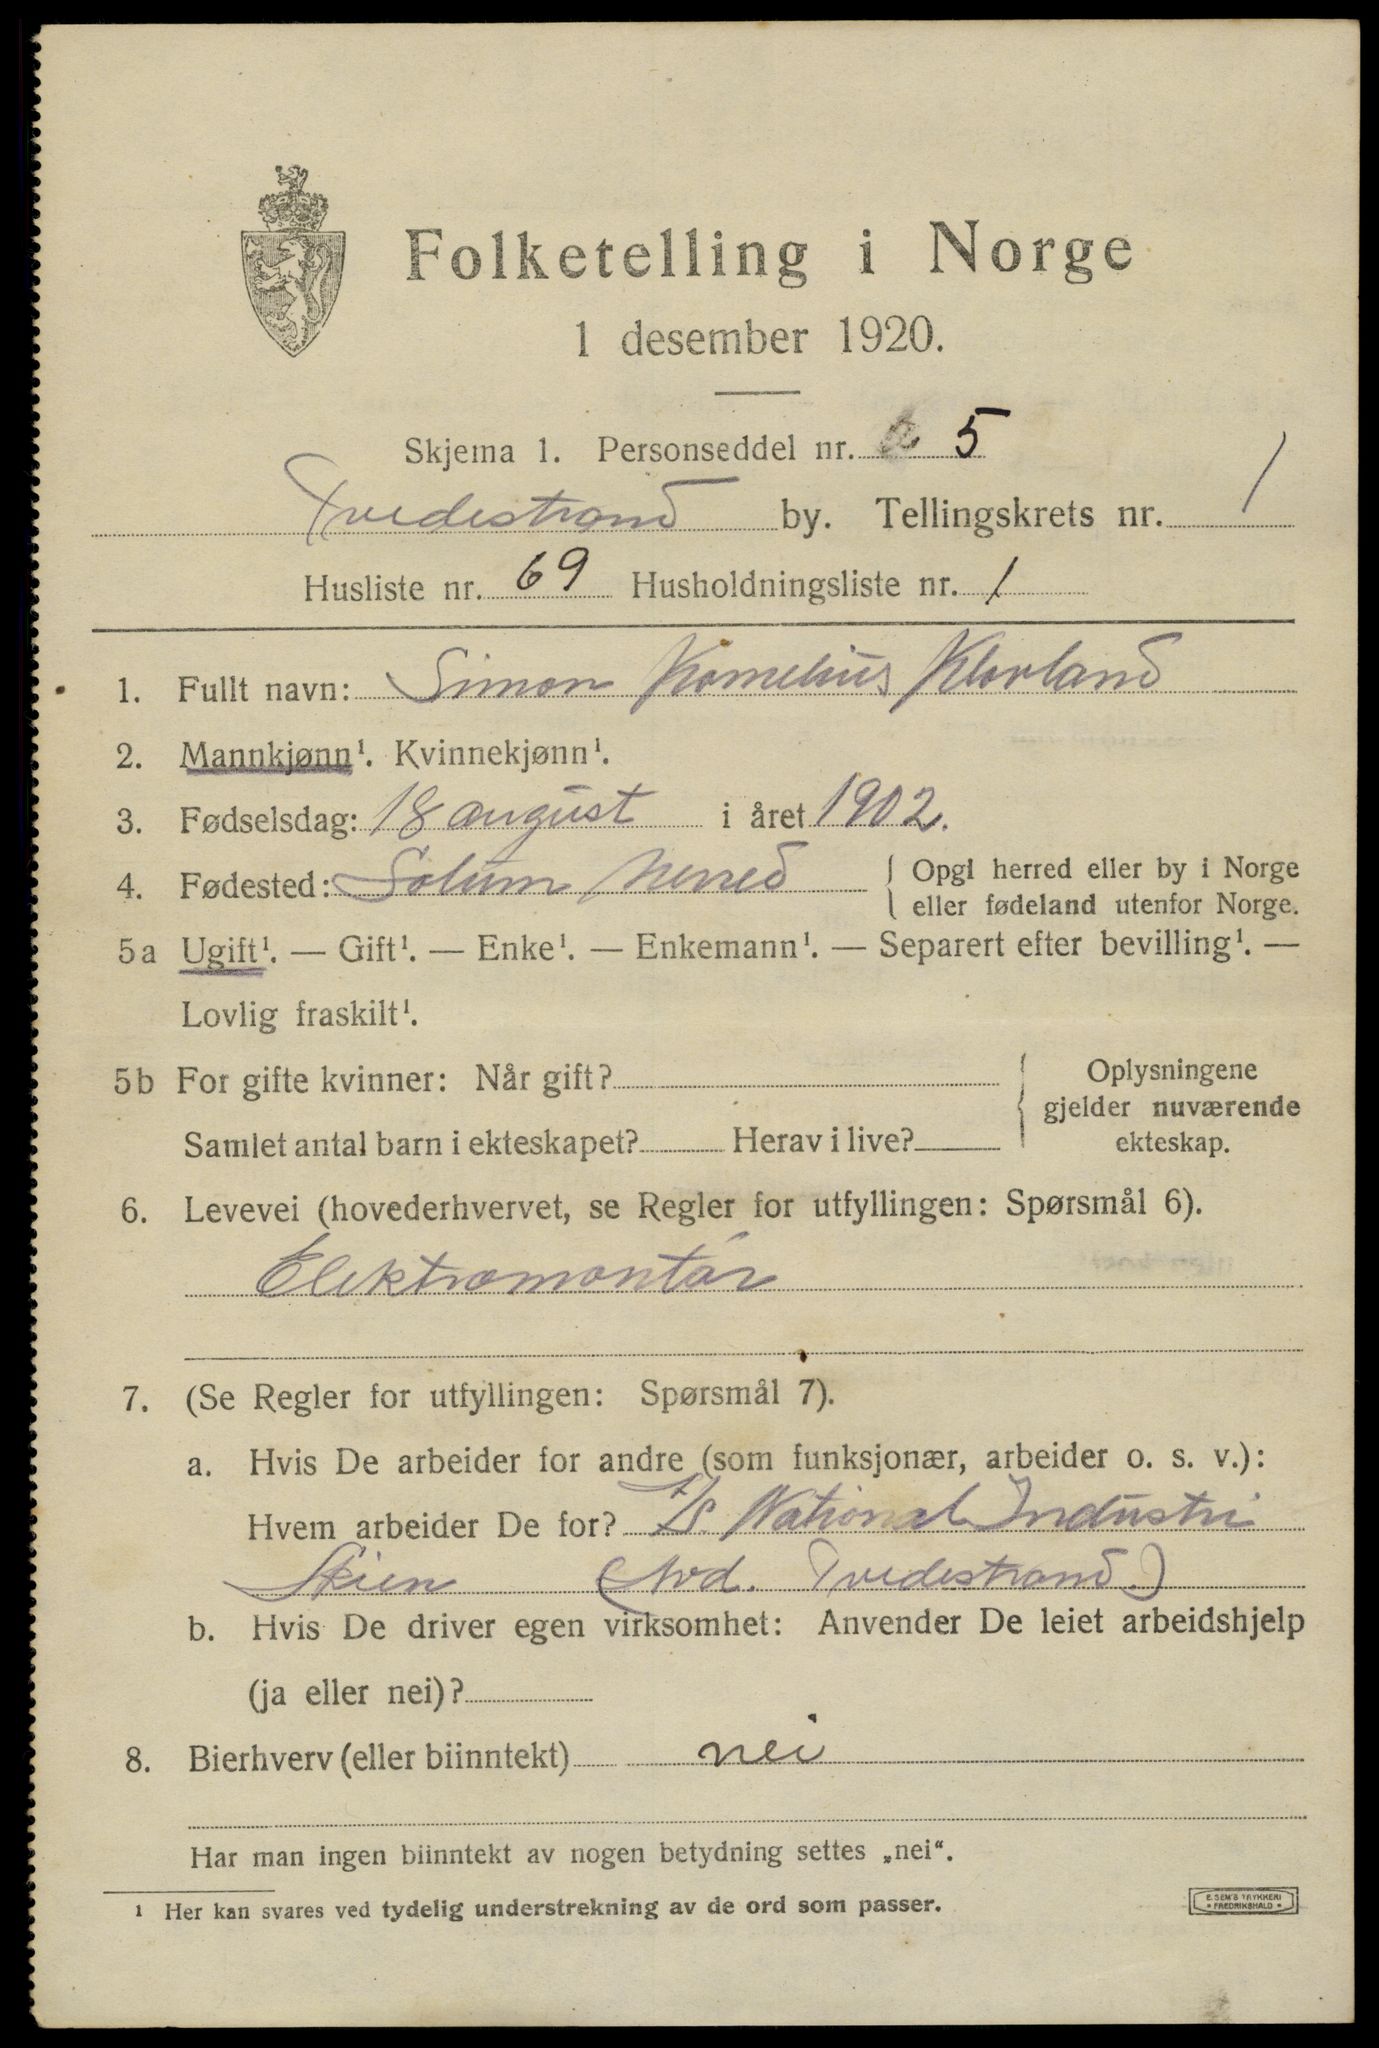 Folketelling i Norge
1 desember 1920.
Skjema 1. Personseddel nr. 5
Tvedestrand by. Tellingskrets nr. 1
Husliste nr. 69 Husholdningsliste nr. 1
1. Fullt navn: Simon Kornelius Klovland
2. Mannkjønn¹. Kvinnekjønn¹.
3. Fødselsdag: 18 august i året 1902.
4. Fødested: Solum herred { Opgi herred eller by i Norge
eller fødeland utenfor Norge.
5a Ugift¹. — Gift¹. — Enke¹. — Enkemann¹. — Separert efter bevilling¹. —
Lovlig fraskilt¹.
5b For gifte kvinner: Når gift? { Oplysningene
gjelder nuværende
Samlet antal barn i ekteskapet? Herav i live? ekteskap.
6. Levevei (hovederhvervet, se Regler for utfyllingen: Spørsmål 6).
Elektromontör
7. (Se Regler for utfyllingen: Spørsmål 7).
a. Hvis De arbeider for andre (som funksjonær, arbeider o. s. v.):
Hvem arbeider De for? A/S National Industri
Skien (Avd. Tvedestrand.)
b. Hvis De driver egen virksomhet: Anvender De leiet arbeidshjelp
(ja eller nei)?
8. Bierhverv (eller biinntekt) nei
Har man ingen biinntekt av nogen betydning settes „nei“.
1 Her kan svares ved tydelig understrekning av de ord som passer.
E. SEM'S TRYKKERI
• FREDRIKSHALD •